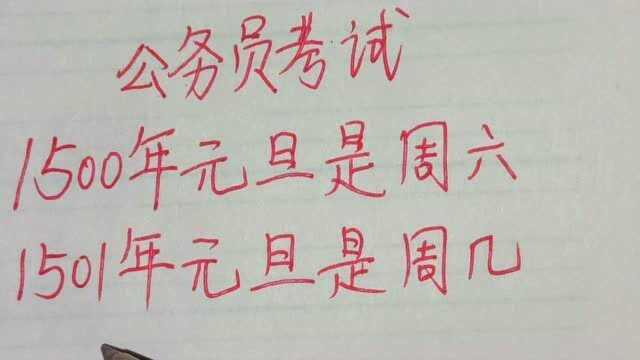 公务员考试
1500年元旦是周六
1501年元旦是周几